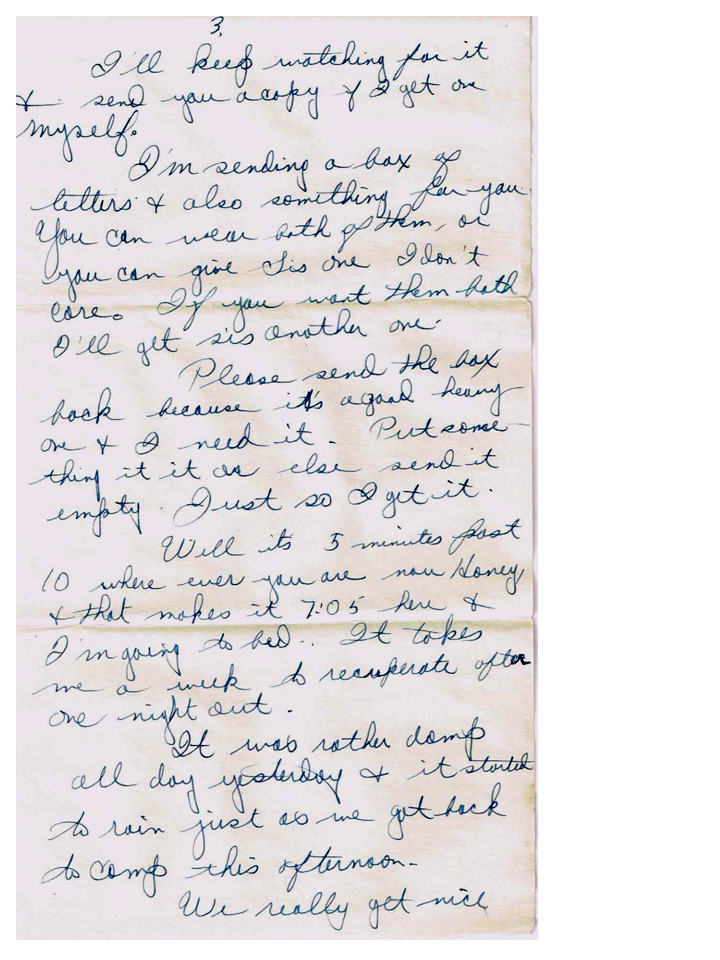 3.
I'll keep watching for it
& send you a copy if I get one
myself.
I'm sending a box of
letters & also something for you.
You can wear both of them, or
you can give Sis one I don't
care. If you want them both
I'll get sis another one.
Please send the box
back because it's a good heavy
one & I need it. Put some-
thing it it or else send it
empty. Just so I get it.
Well its 5 minutes past
10 where ever you are now Honey
& that makes it 7:05 here &
I'm going to bed.. It takes
me a week to recuperate after
one night out.
It was rather damp
all day yesterday & it started
to rain just as we got back
to camp this afternoon.
We really get nice